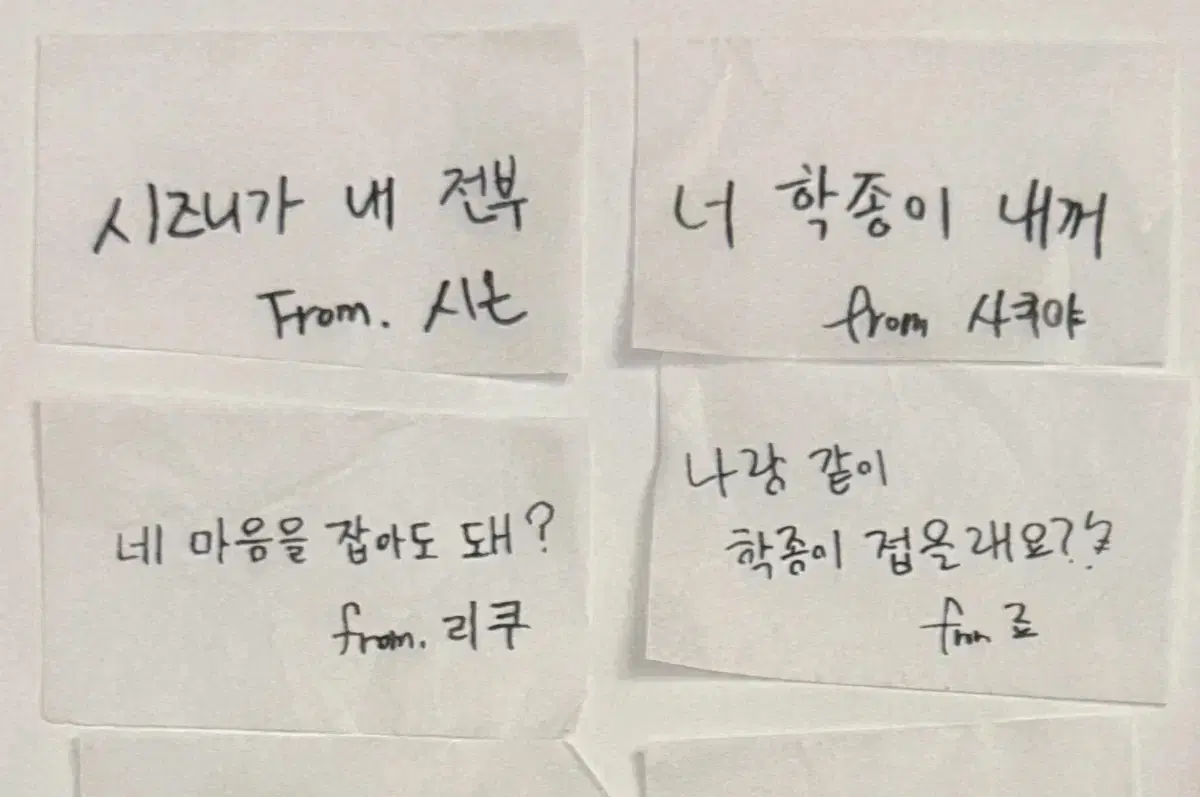 시즈니가 내 전부
From. 시온
너 학종이 내꺼
from 사쿠야
네 마음을 잡아도 돼?
from. 리쿠
나랑 같이
학종이 접을래요??
from 료